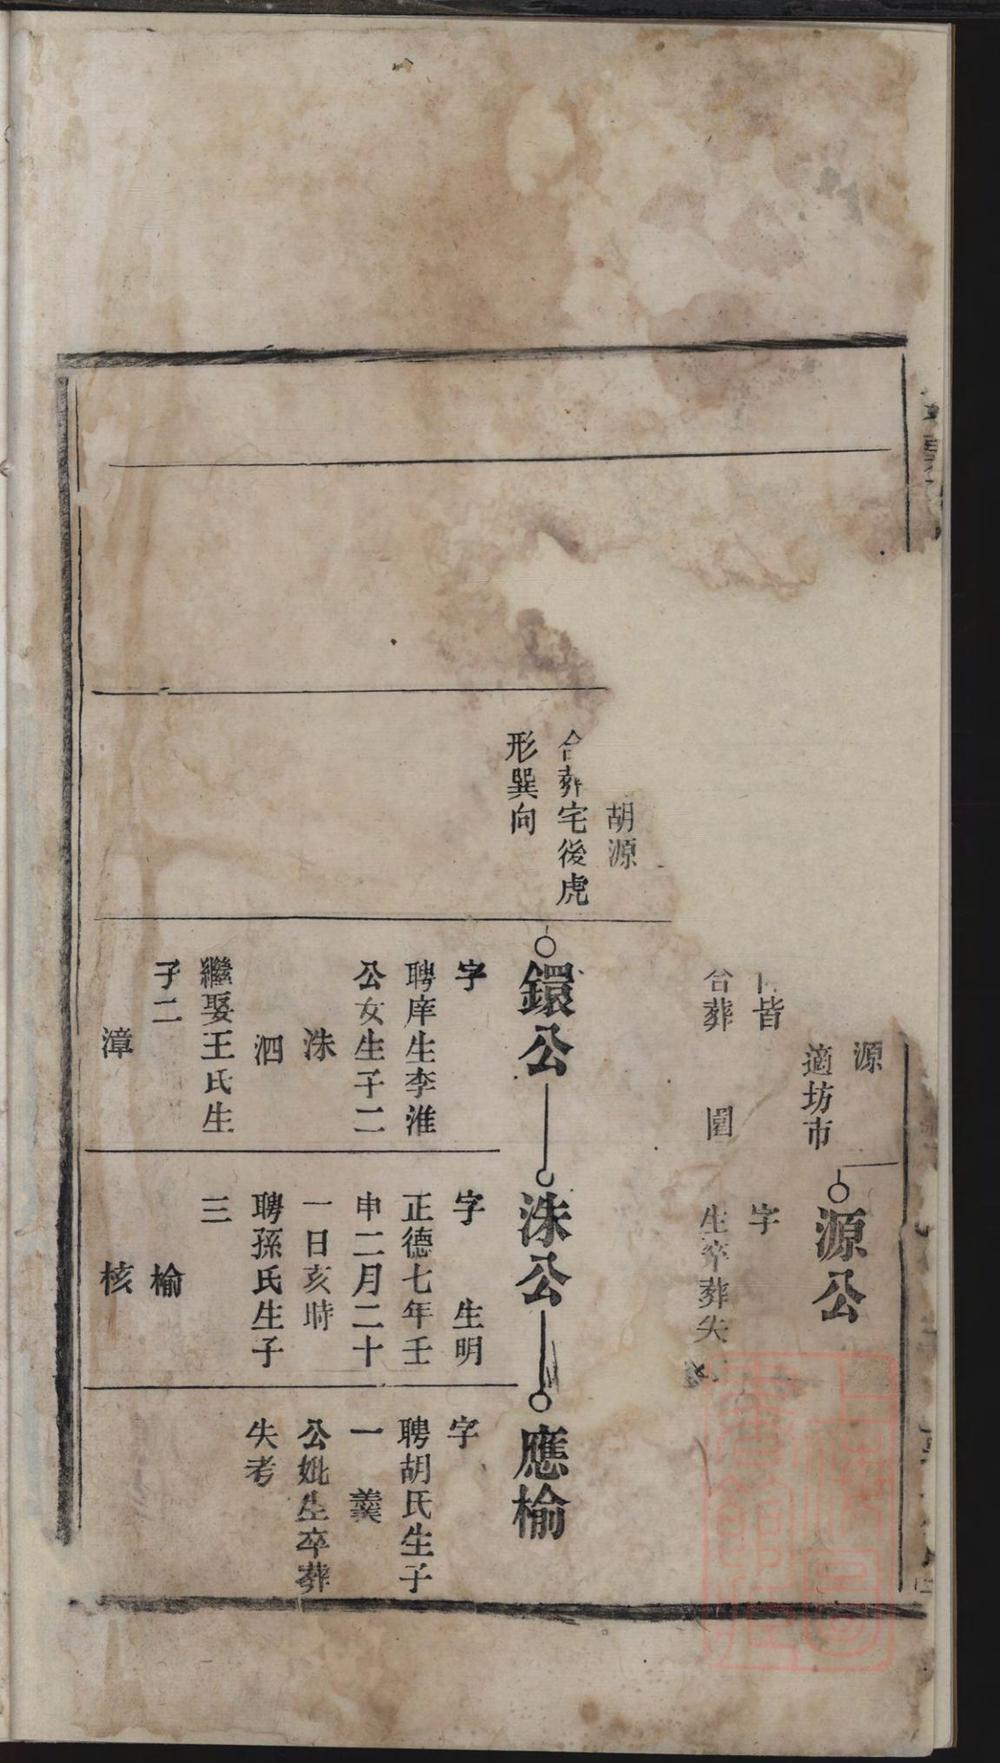 胡源
合葬宅後虎
形巽向
源
適坊市
皆
合葬　圍
鐶公
字
聘庠生李淮
公女生子二
洙
泗
繼娶王氏生
子二
漳
源公
字
生卒葬失
洙公
字　生明
正德七年壬
申二月二十
一日亥時
聘孫氏生子
三
榆
核
應榆
字
聘胡氏生子
一　羹
公妣生卒葬
失考